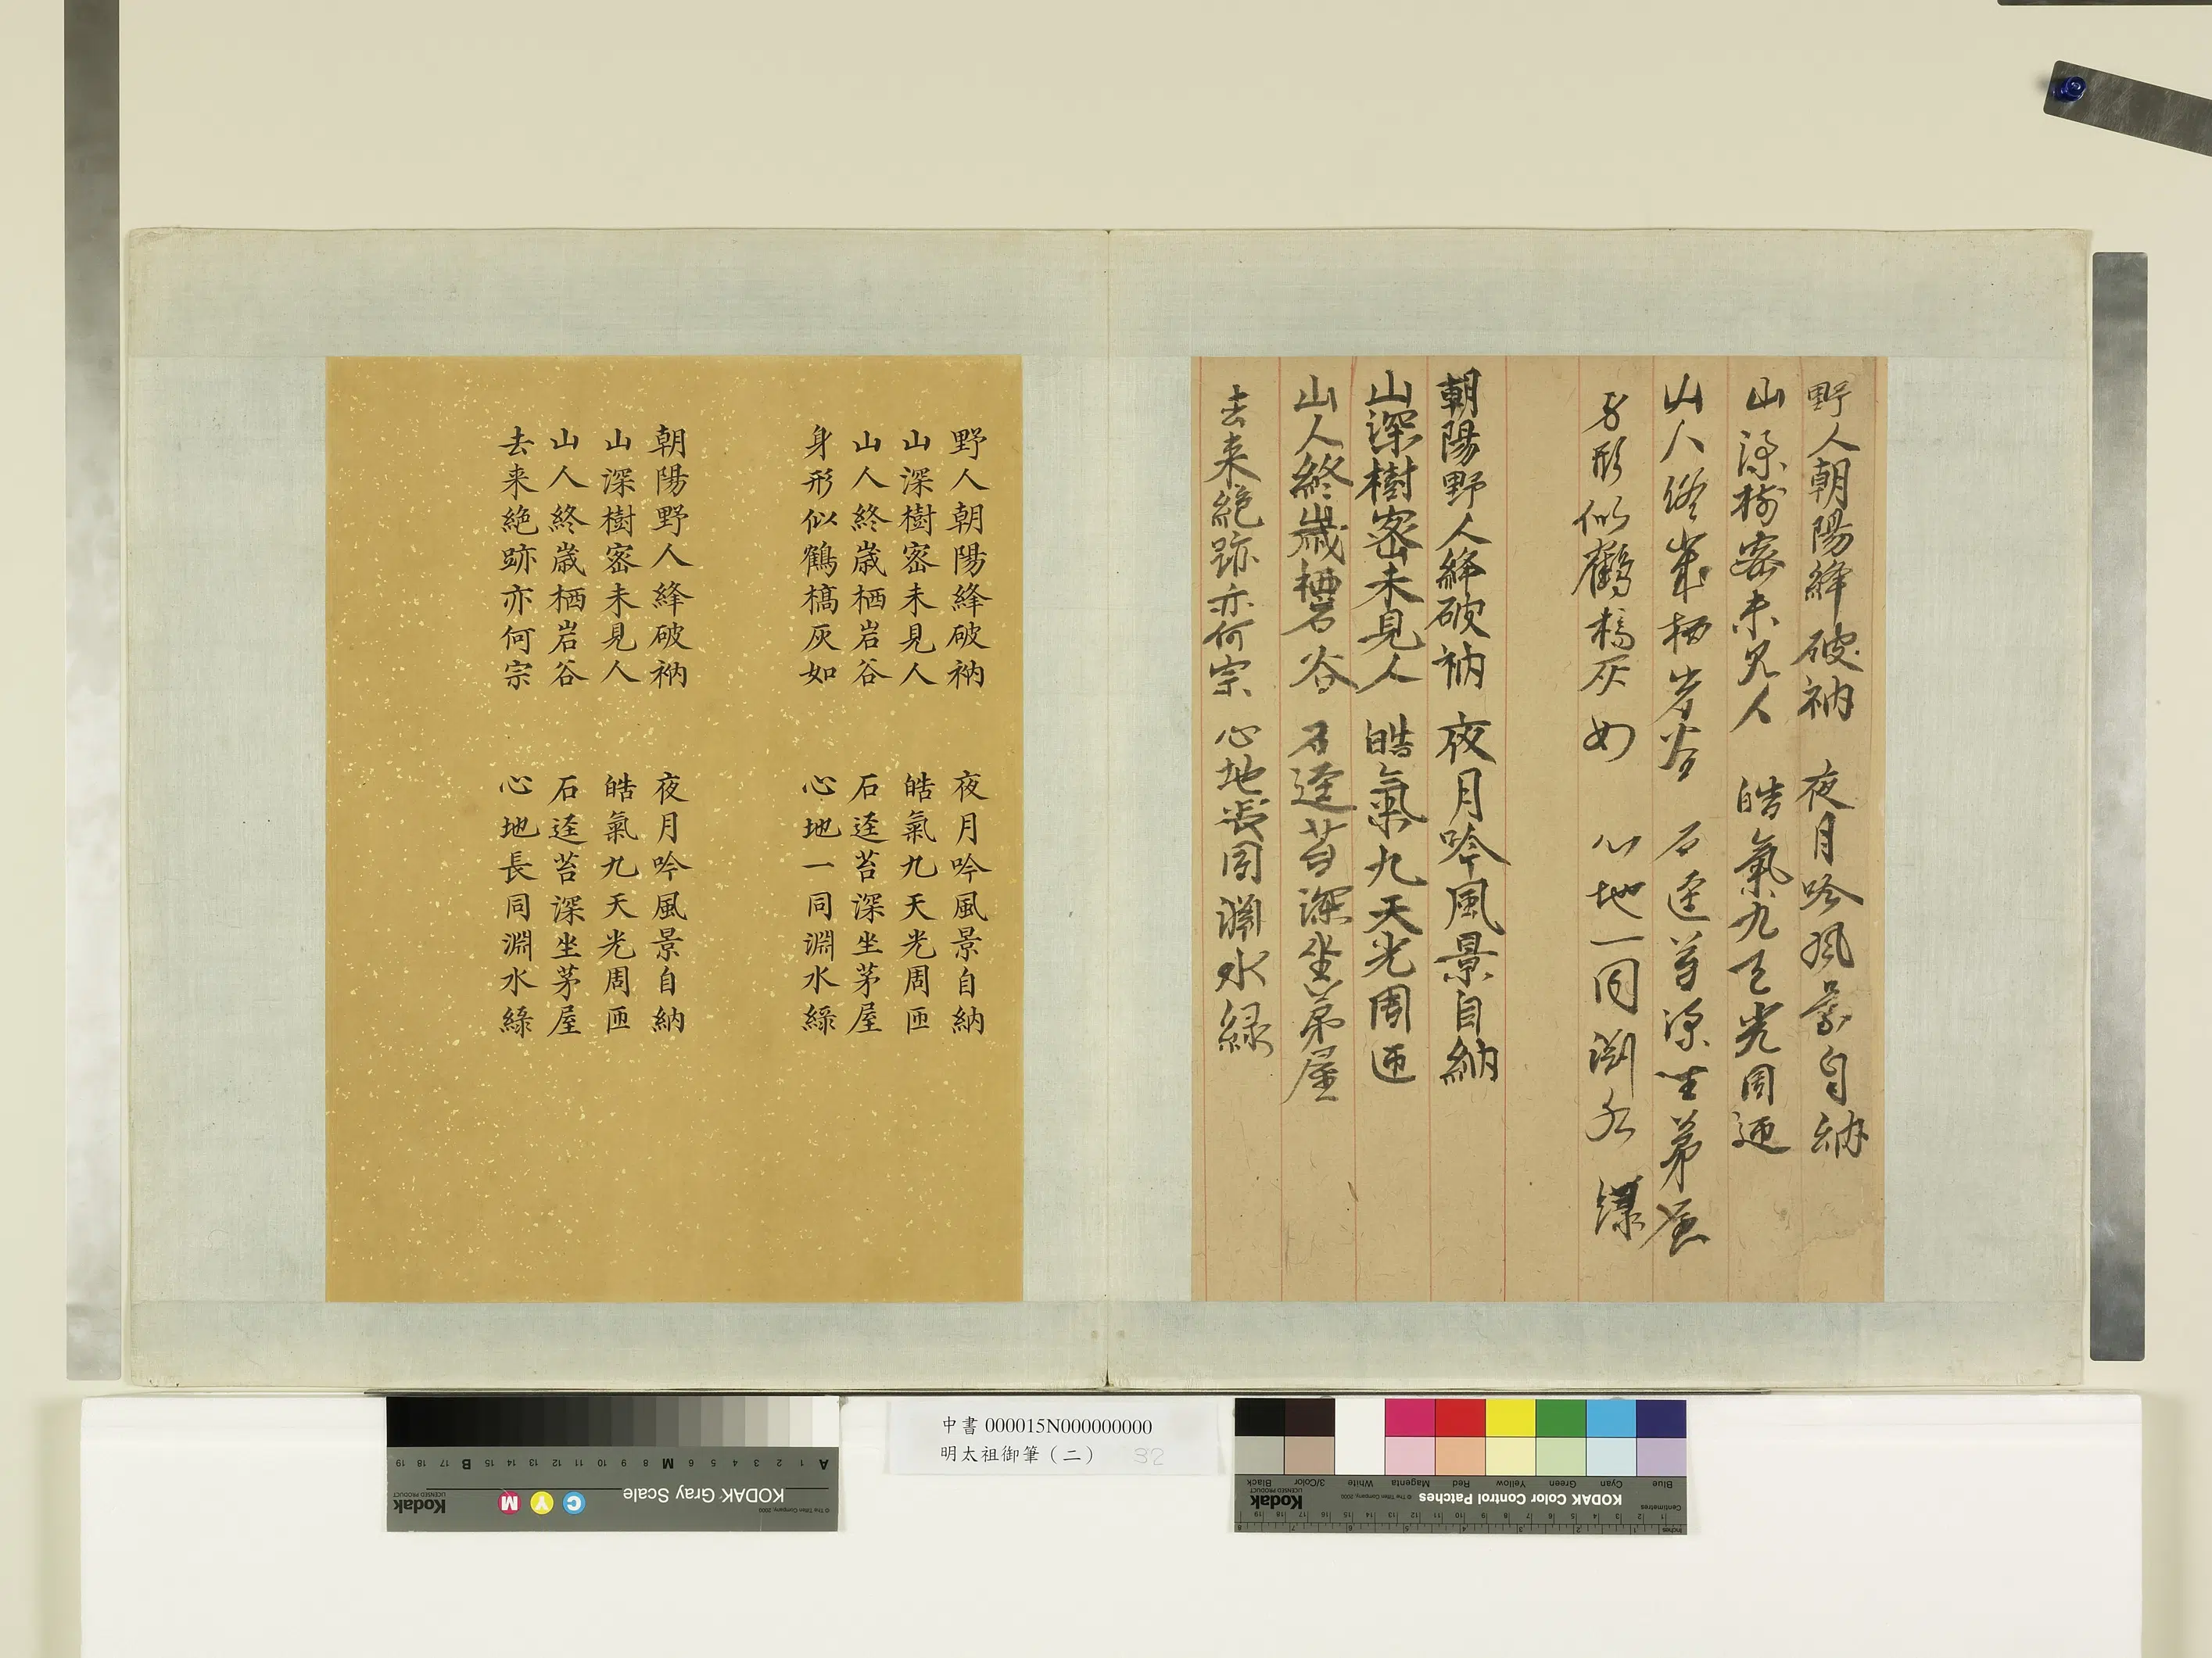 野人朝陽絳破衲 夜月吟風景自納
山深樹密未見人 皓氣九天光周迊
山人終歲栖岩谷 石逕苔深坐茅屋
身形似鶴槁灰如 心地一同淵水綠
朝陽野人絳破衲 夜月吟風景自納
山深樹密未見人 皓氣九天光周迊
山人終歲栖岩谷 石逕苔深坐茅屋
去来絶跡亦何宗 心地長同淵水綠
野人朝陽絳破衲 夜月吟風景自納
山深樹密未見人 皓氣九天光周迊
山人終歲栖岩谷 石逕苔深坐茅屋
身形似鶴槁灰如 心地一同淵水綠
朝陽野人絳破衲 夜月吟風景自納
山深樹密未見人 皓氣九天光周迊
山人終歲栖岩谷 石逕苔深坐茅屋
去来絶跡亦何宗 心地長同淵水綠
中書 000015N000000000
明太祖御筆（二） 32
A 1 2 3 4 5 6 M 8 9 10 11 12 13 14 15 B 17 18 19
KODAK Gray Scale
C Y M
Kodak
LICENSED PRODUCT
© The Tiffen Company, 2000
Blue Cyan Green Yellow Red Magenta White 3/Color Black
KODAK Color Control Patches
© The Tiffen Company, 2000
Kodak
LICENSED PRODUCT
Centimetres
1 2 3 4 5 6 7 8 9 10 11 12 13 14 15 16 17 18 19
Inches
1 2 3 4 5 6 7 8